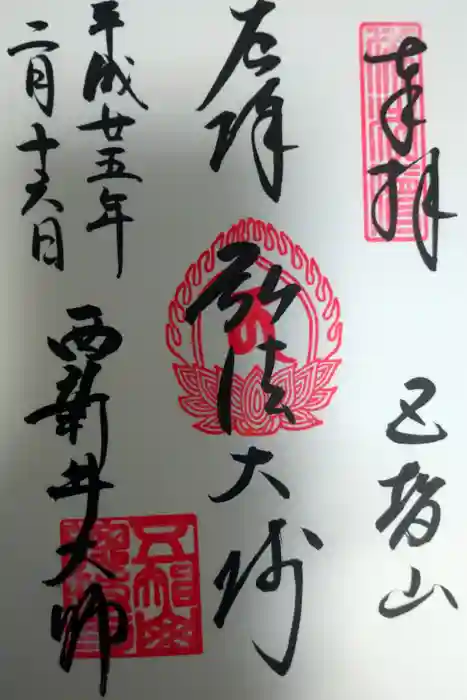 奉拝
五智山
厄除
弘法大師
平成廿五年
二月十六日
西新井大師